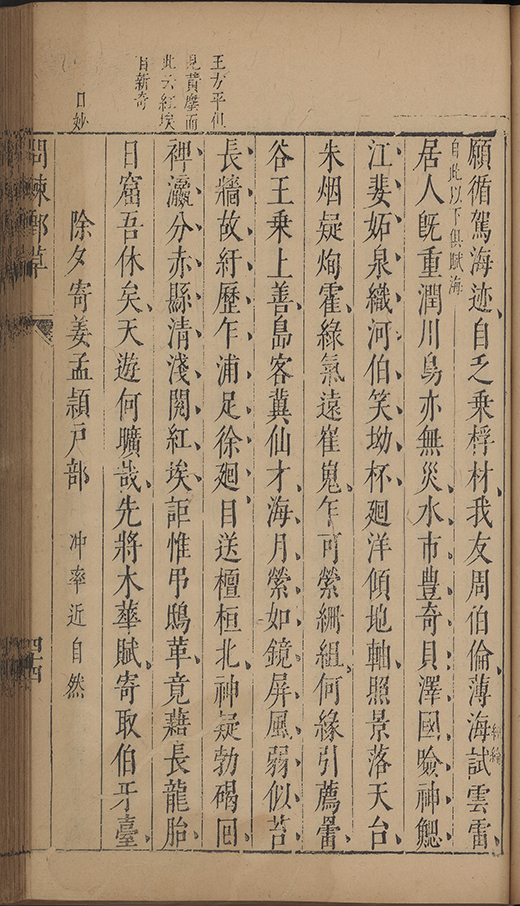 願循駕海迹自乏乘桴材我友周伯倫薄海試雲雷
自此以下俱賦海
居人既重潤川鳥亦無災水市豊奇貝澤國噞神鰓
江婓妬泉織河伯笑坳杯廻洋傾地軸照景落天台
朱烟疑霍綠氣遠崔嵬乍可縈組何緣引薦罍
谷王乘上善島客冀仙才海月縈如鏡屏風弱似苔
長牆故紆歷乍浦足徐廻目送檀桓北神疑勃碣回
裨瀛分赤縣清淺閱紅埃詎惟弔鴟革竟藉長龍胎
日窟吾休矣天遊何曠哉先將木華賦寄取伯牙臺
除夕寄姜孟頴戶部 冲率近自然
王方平但
見黃塵而
此云紅埃
自新奇
問棘郵草